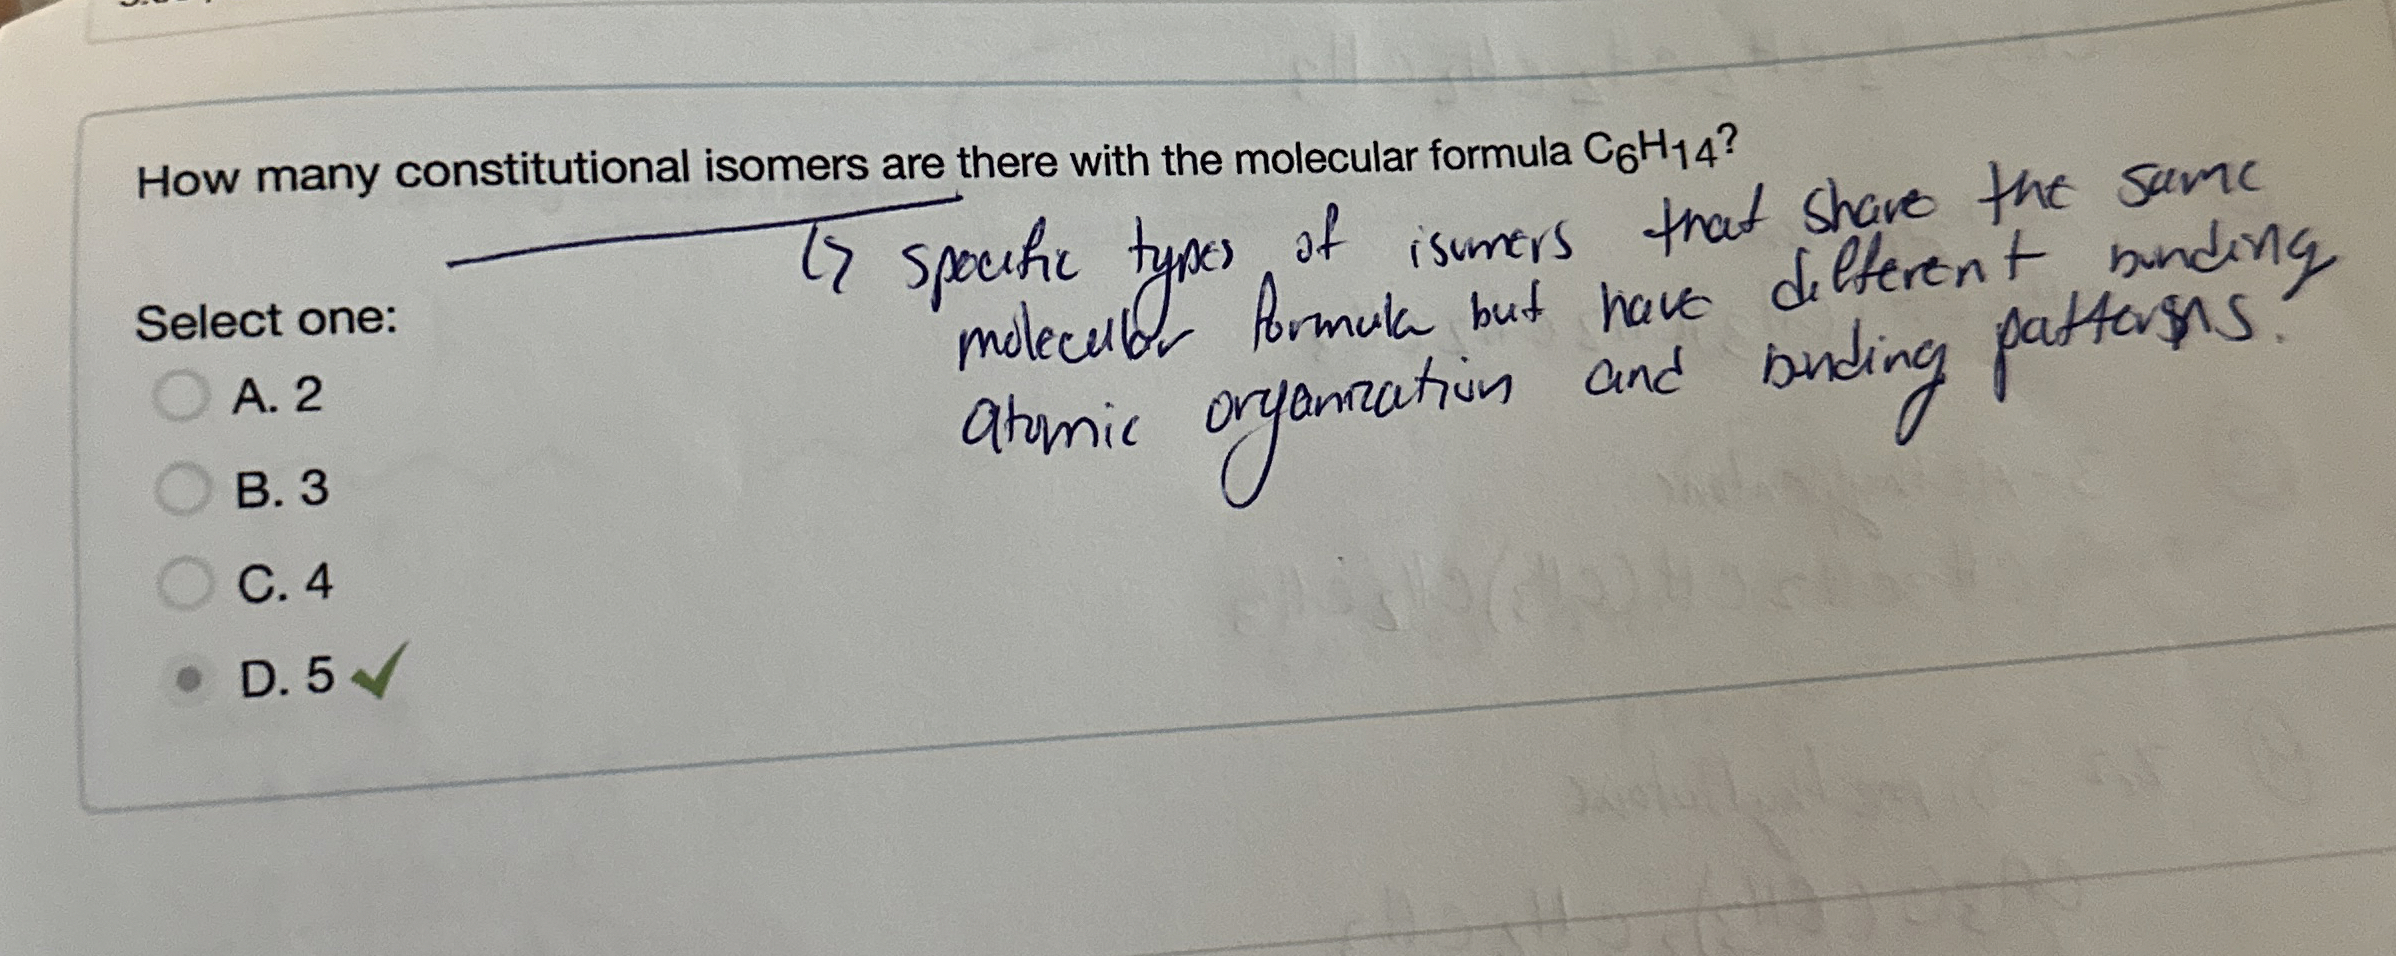 How many constitutional isomers are there with the molecular formula C₆H₁₄?
↳ specific types of isomers that share the same
molecular formula but have different bonding
atomic organization and bonding patterns.
Select one:
A. 2
B. 3
C. 4
D. 5 ✓